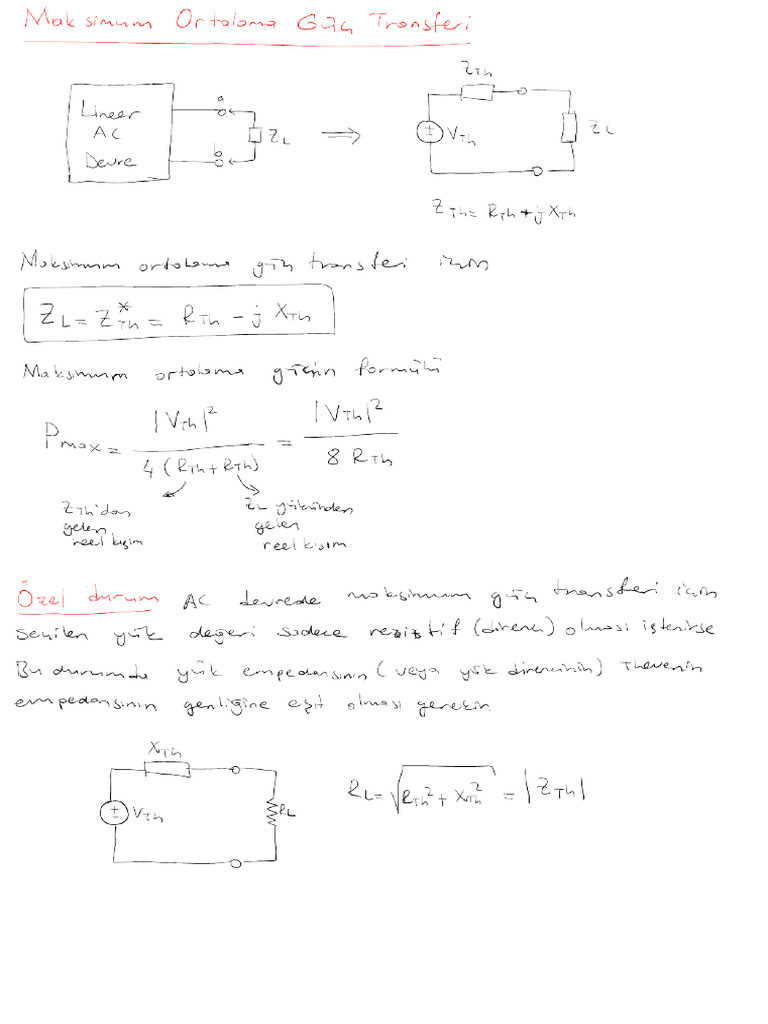 Maksimum Ortalama Güç Transferi
Lineer
AC
Devre
a
b
Z_L
⇒
Z_Th
V_Th
Z_L
Z_Th = R_Th + j X_Th
Maksimum ortalama güç transferi için
Z_L = Z_Th^* = R_Th - j X_Th
Maksimum ortalama gücün formülü
P_max = |V_Th|^2 / 4 (R_Th + R_Th) = |V_Th|^2 / 8 R_Th
Z_Th'dan
gelen
reel kısım
Z_L yükünden
gelen
reel kısım
Özel durum AC devrede maksimum güç transferi için
seçilen yük değeri sadece rezistif (direnci) olması istenirse
Bu durumda yük empedansının (veya yük direncinin) Thevenin
empedansının genliğine eşit olması gerekir.
X_Th
V_Th
R_L
R_L = √(R_Th^2 + X_Th^2) = |Z_Th|